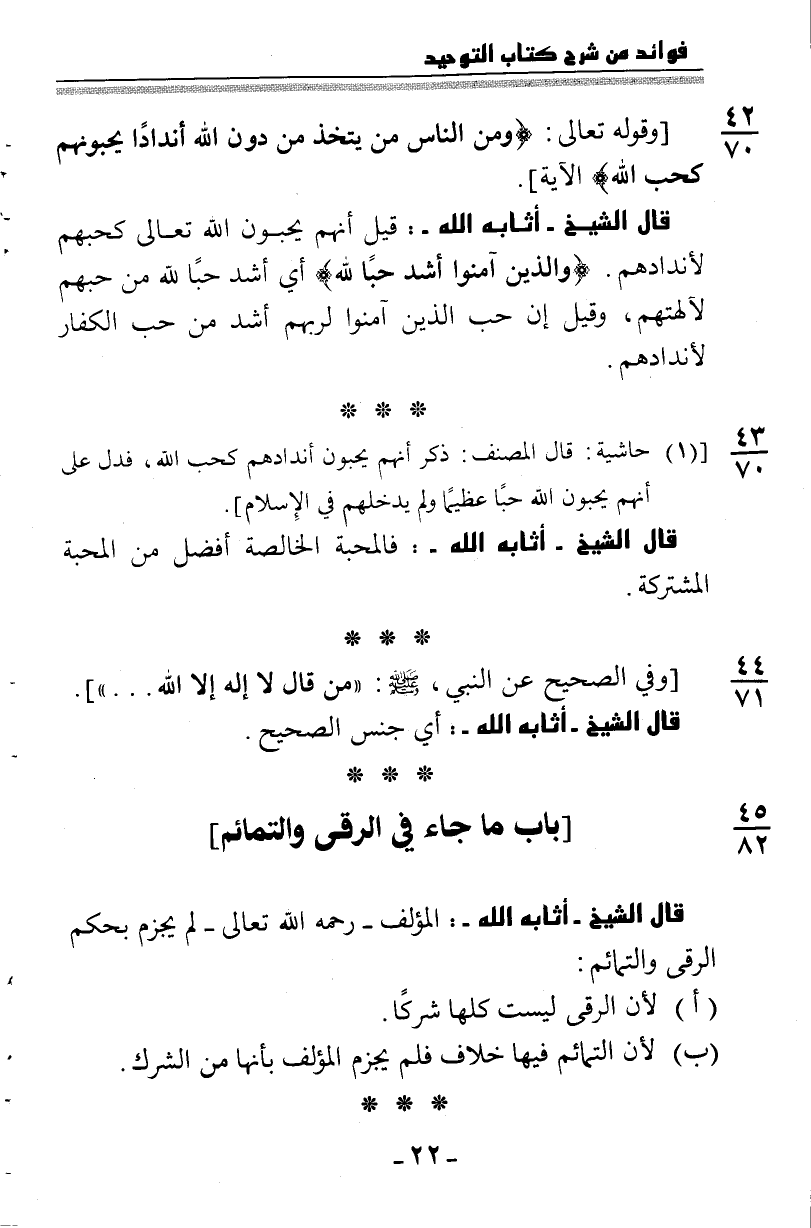 فوائد من شرح كتاب التوحيد
٤٢
٧٠
[وقوله تعالى: ﴿ومن الناس من يتخذ من دون الله أندادًا يحبونهم
كحب الله﴾ الآية].
قال الشيخ - أثابه الله -: قيل أنهم يحبون الله تعالى كحبهم
لأندادهم. ﴿والذين آمنوا أشد حبًا لله﴾ أي أشد حبًا لله من حبهم
لآلهتهم، وقيل إن حب الذين آمنوا لربهم أشد من حب الكفار
لأندادهم.
* * *
٤٣
٧٠
[(١) حاشية: قال المصنف: ذكر أنهم يحبون أندادهم كحب الله، فدل على
أنهم يحبون الله حبًا عظيمًا ولم يدخلهم في الإسلام].
قال الشيخ - أثابه الله -: فالمحبة الخالصة أفضل من المحبة
المشتركة.
* * *
٤٤
٧١
[وفي الصحيح عن النبي، ﷺ: «من قال لا إله إلا الله...»].
قال الشيخ - أثابه الله -: أي جنس الصحيح.
* * *
٤٥
٨٢
[باب ما جاء في الرقى والتمائم]
قال الشيخ - أثابه الله -: المؤلف - رحمه الله تعالى - لم يجزم بحكم
الرقى والتمائم:
(أ) لأن الرقى ليست كلها شركًا.
(ب) لأن التمائم فيها خلاف فلم يجزم المؤلف بأنها من الشرك.
* * *
- ٢٢ -